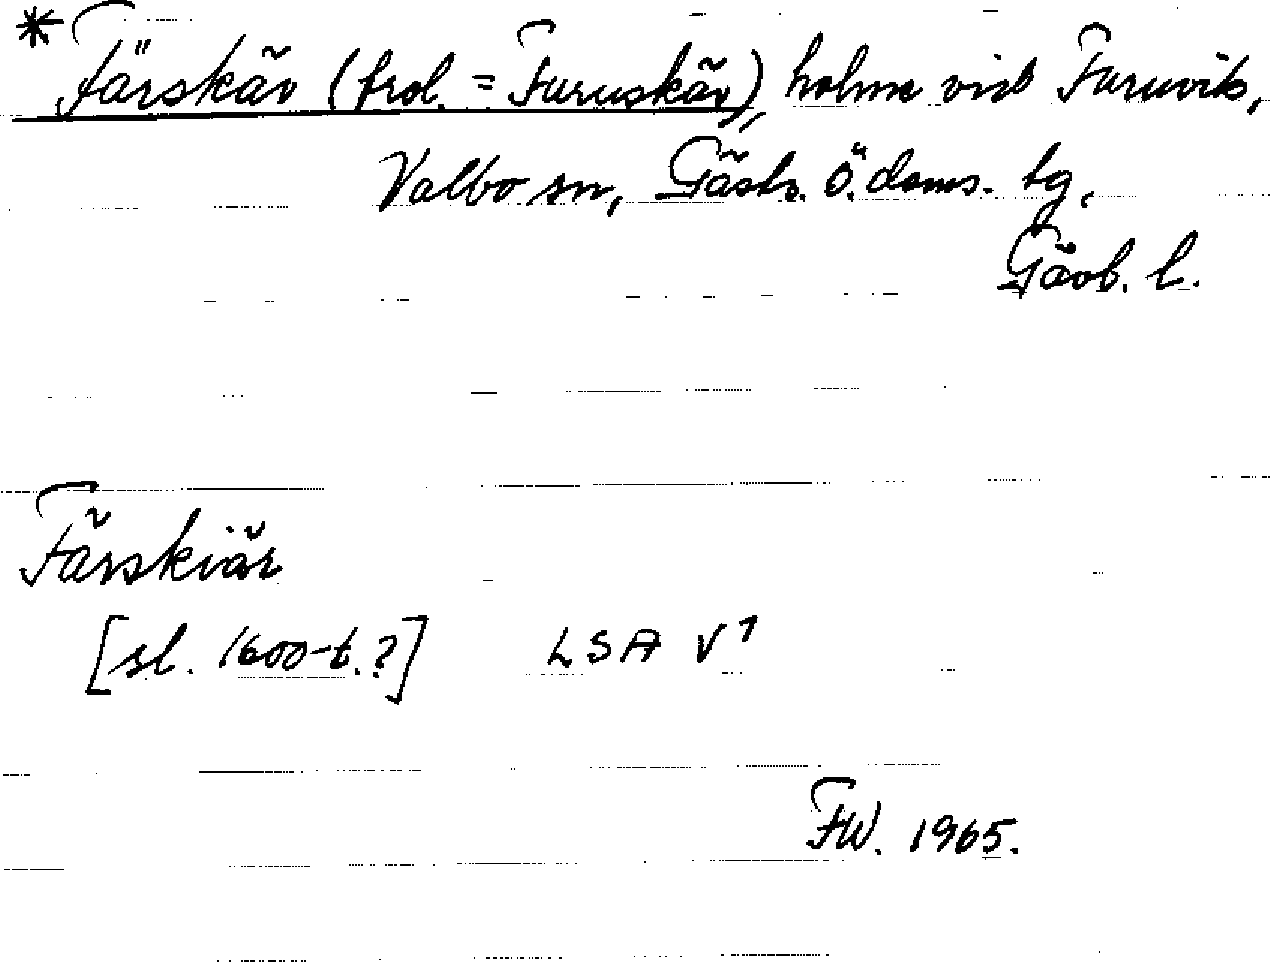 * Färskär (trol. = Furuskär), holme vid Furuvik,
Valbo sn, Gästr. ö. doms. tg,
Gävb. l.
Färskiär
[sl. 1600-t.?] LSA V 1
FW. 1965.